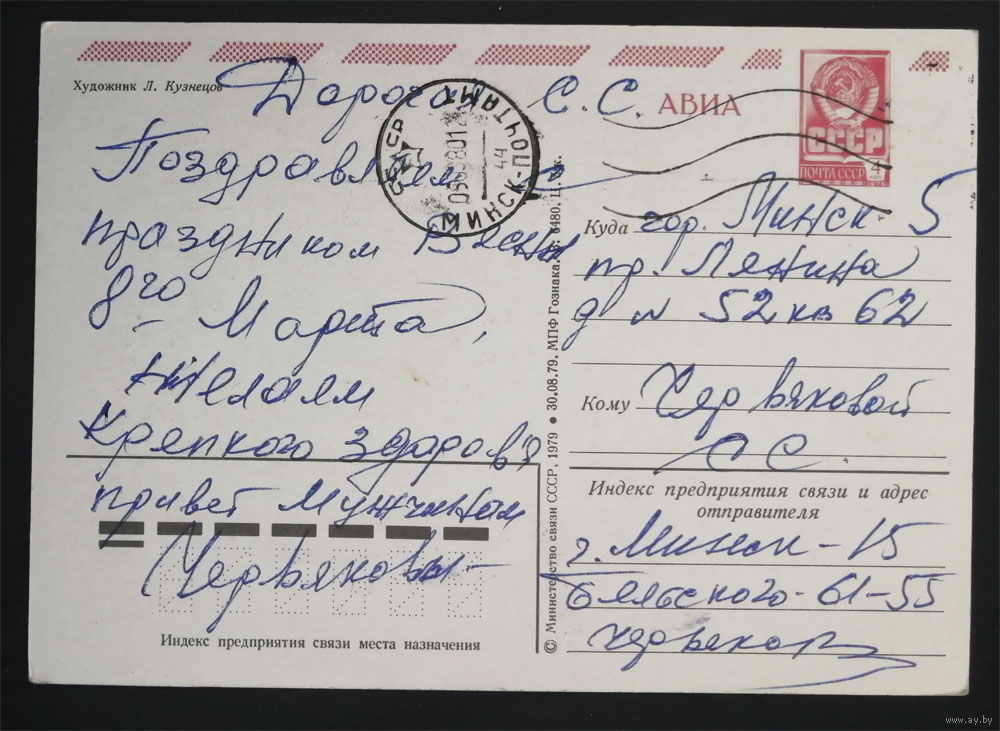 Художник Л. Кузнецов
Дорогая С.С.
Поздравляем с
праздником Весны
8го – Марта,
Желаем
Крепкого здоров'я
привет Мужчинам
Червяковы
Индекс предприятия связи места назначения
© Министерство связи СССР, 1979 • 30.08.79. МПФ Гознака. 6480. Ц.
АВИА
СССР
ПОЧТА СССР
4
1976
МИНСК-ПОЧТАМТ
Куда гор. Минск 5
пр. Лянина
д № 52 кв 62
Кому Червяковой
С С.
Индекс предприятия связи и адрес
отправителя
г. Минск – 15
Бяльского - 61-55
Червяков
www.ay.by